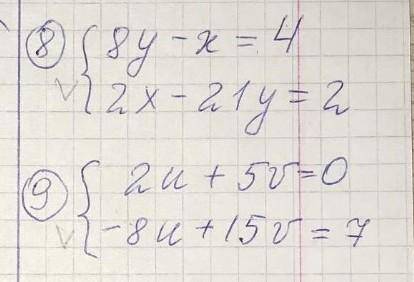 ⑧ { 8y - x = 4
2x - 21y = 2
⑨ { 2u + 5v = 0
-8u + 15v = 7